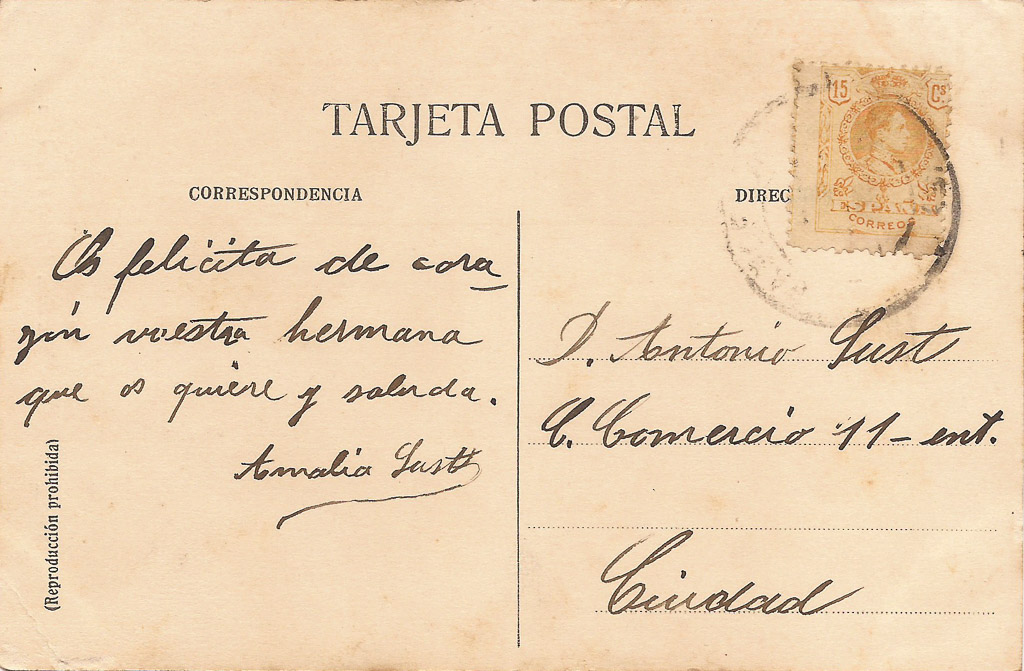 TARJETA POSTAL
CORRESPONDENCIA
Os felicita de cora
zón vuestra hermana
que os quiere y saluda.
Amalia Sust
(Reproducción prohibida)
DIREC
15 Cs
ESPAÑA
CORREOS
D. Antonio Sust
C. Comercio 11-ent.
Ciudad